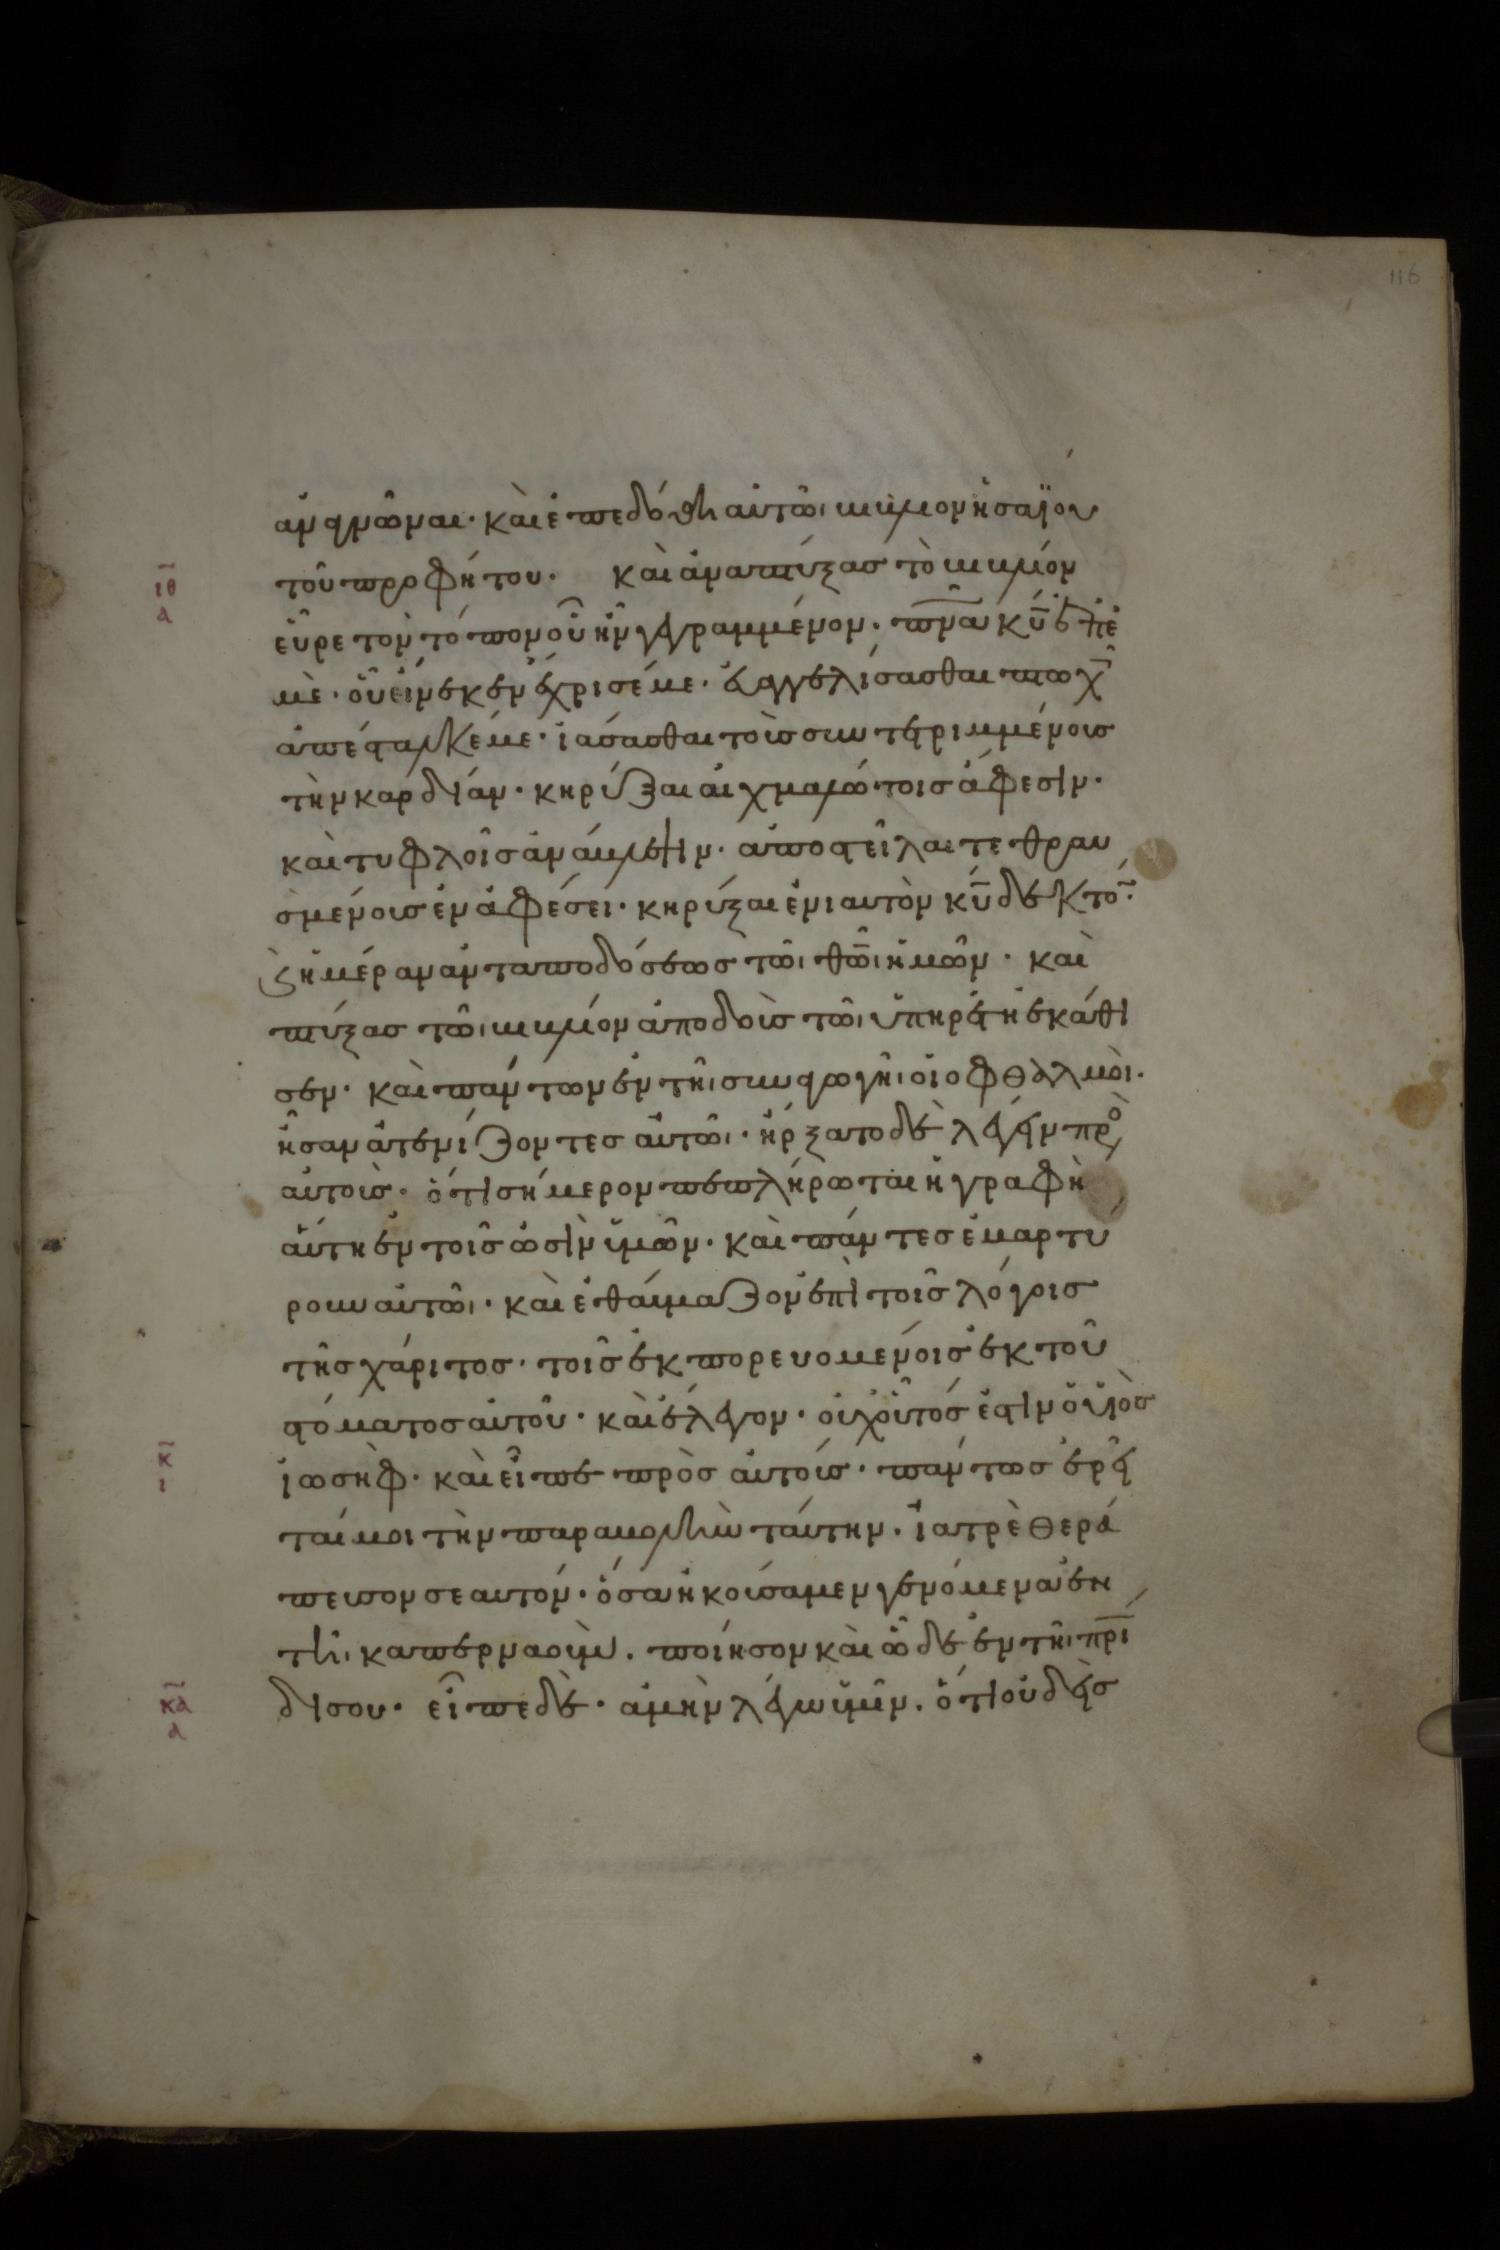 116
ἀναγνῶναι· καὶ ἐπεδόθη αὐτῶι βιβλίον ἠσαΐου
τοῦ προφήτου· καὶ ἀναπτύξας τὸ βιβλίον
ιθ
α
εὗρε τὸν τόπον οὗ ἦν γεγραμμένον· πν̅α κ̅υ ἐπ' ἐ
μὲ· οὗ εἵνεκεν ἔχρισέ με· εὐαγγελίσασθαι πτωχ
ἀπέσταλκέ με· ἰάσασθαι τοὺς συντετριμμένους
τὴν καρδίαν· κηρύξαι αἰχμαλώτοις ἄφεσιν·
καὶ τυφλοῖς ἀνάβλεψιν· ἀποστεῖλαι τεθραυ
σμένους ἐν ἀφέσει· κηρύξαι ἐνιαυτὸν κ̅υ δεκτὸ̅·
ϗ ἡμέραν ἀνταποδόσεως τῶι θ̅ῶι ἡμῶν· καὶ
πτύξας τῶι βιβλίον ἀποδοὺς τῶι ὑπηρέτη ἐκάθι
σεν· καὶ πάντων ἐν τῆι συναγωγῆι οἱ ὀφθαλμοὶ·
ἦσαν ἀτενίζοντες αὐτῶι· ἤρξατο δὲ λέγειν πρὸ
αὐτοὺς· ὅτι σήμερον πεπλήρωται ἡ γραφὴ
αὕτη ἐν τοῖς ὠσὶν ὑμῶν· καὶ πάντες ἐμαρτύ
ρουν αὐτῶι· καὶ ἐθαύμαζον ἐπὶ τοῖς λόγοις
τῆς χάριτος· τοῖς ἐκπορευομένοις ἐκ τοῦ
στόματος αὐτοῦ· καὶ ἔλεγον· οὐχ οὗτός ἐστιν ὁ υἱὸς
ἰωσήφ· καὶ εἶπε πρὸς αὐτούς· πάντως ἐρεῖ
κ
ι
ταί μοι τὴν παραβολὴν ταύτην· ἰατρὲ θερά
πευσον σεαυτόν· ὅσα ἠκούσαμεν γενόμενα ἐν
τῆι καπερναοὺμ· ποίησον καὶ ὧδε ἐν τῆι π̅ρι
δι σου· εἶπε δὲ· ἀμὴν λέγω ὑμῖν· ὅτι οὐδεὶς
κα
α